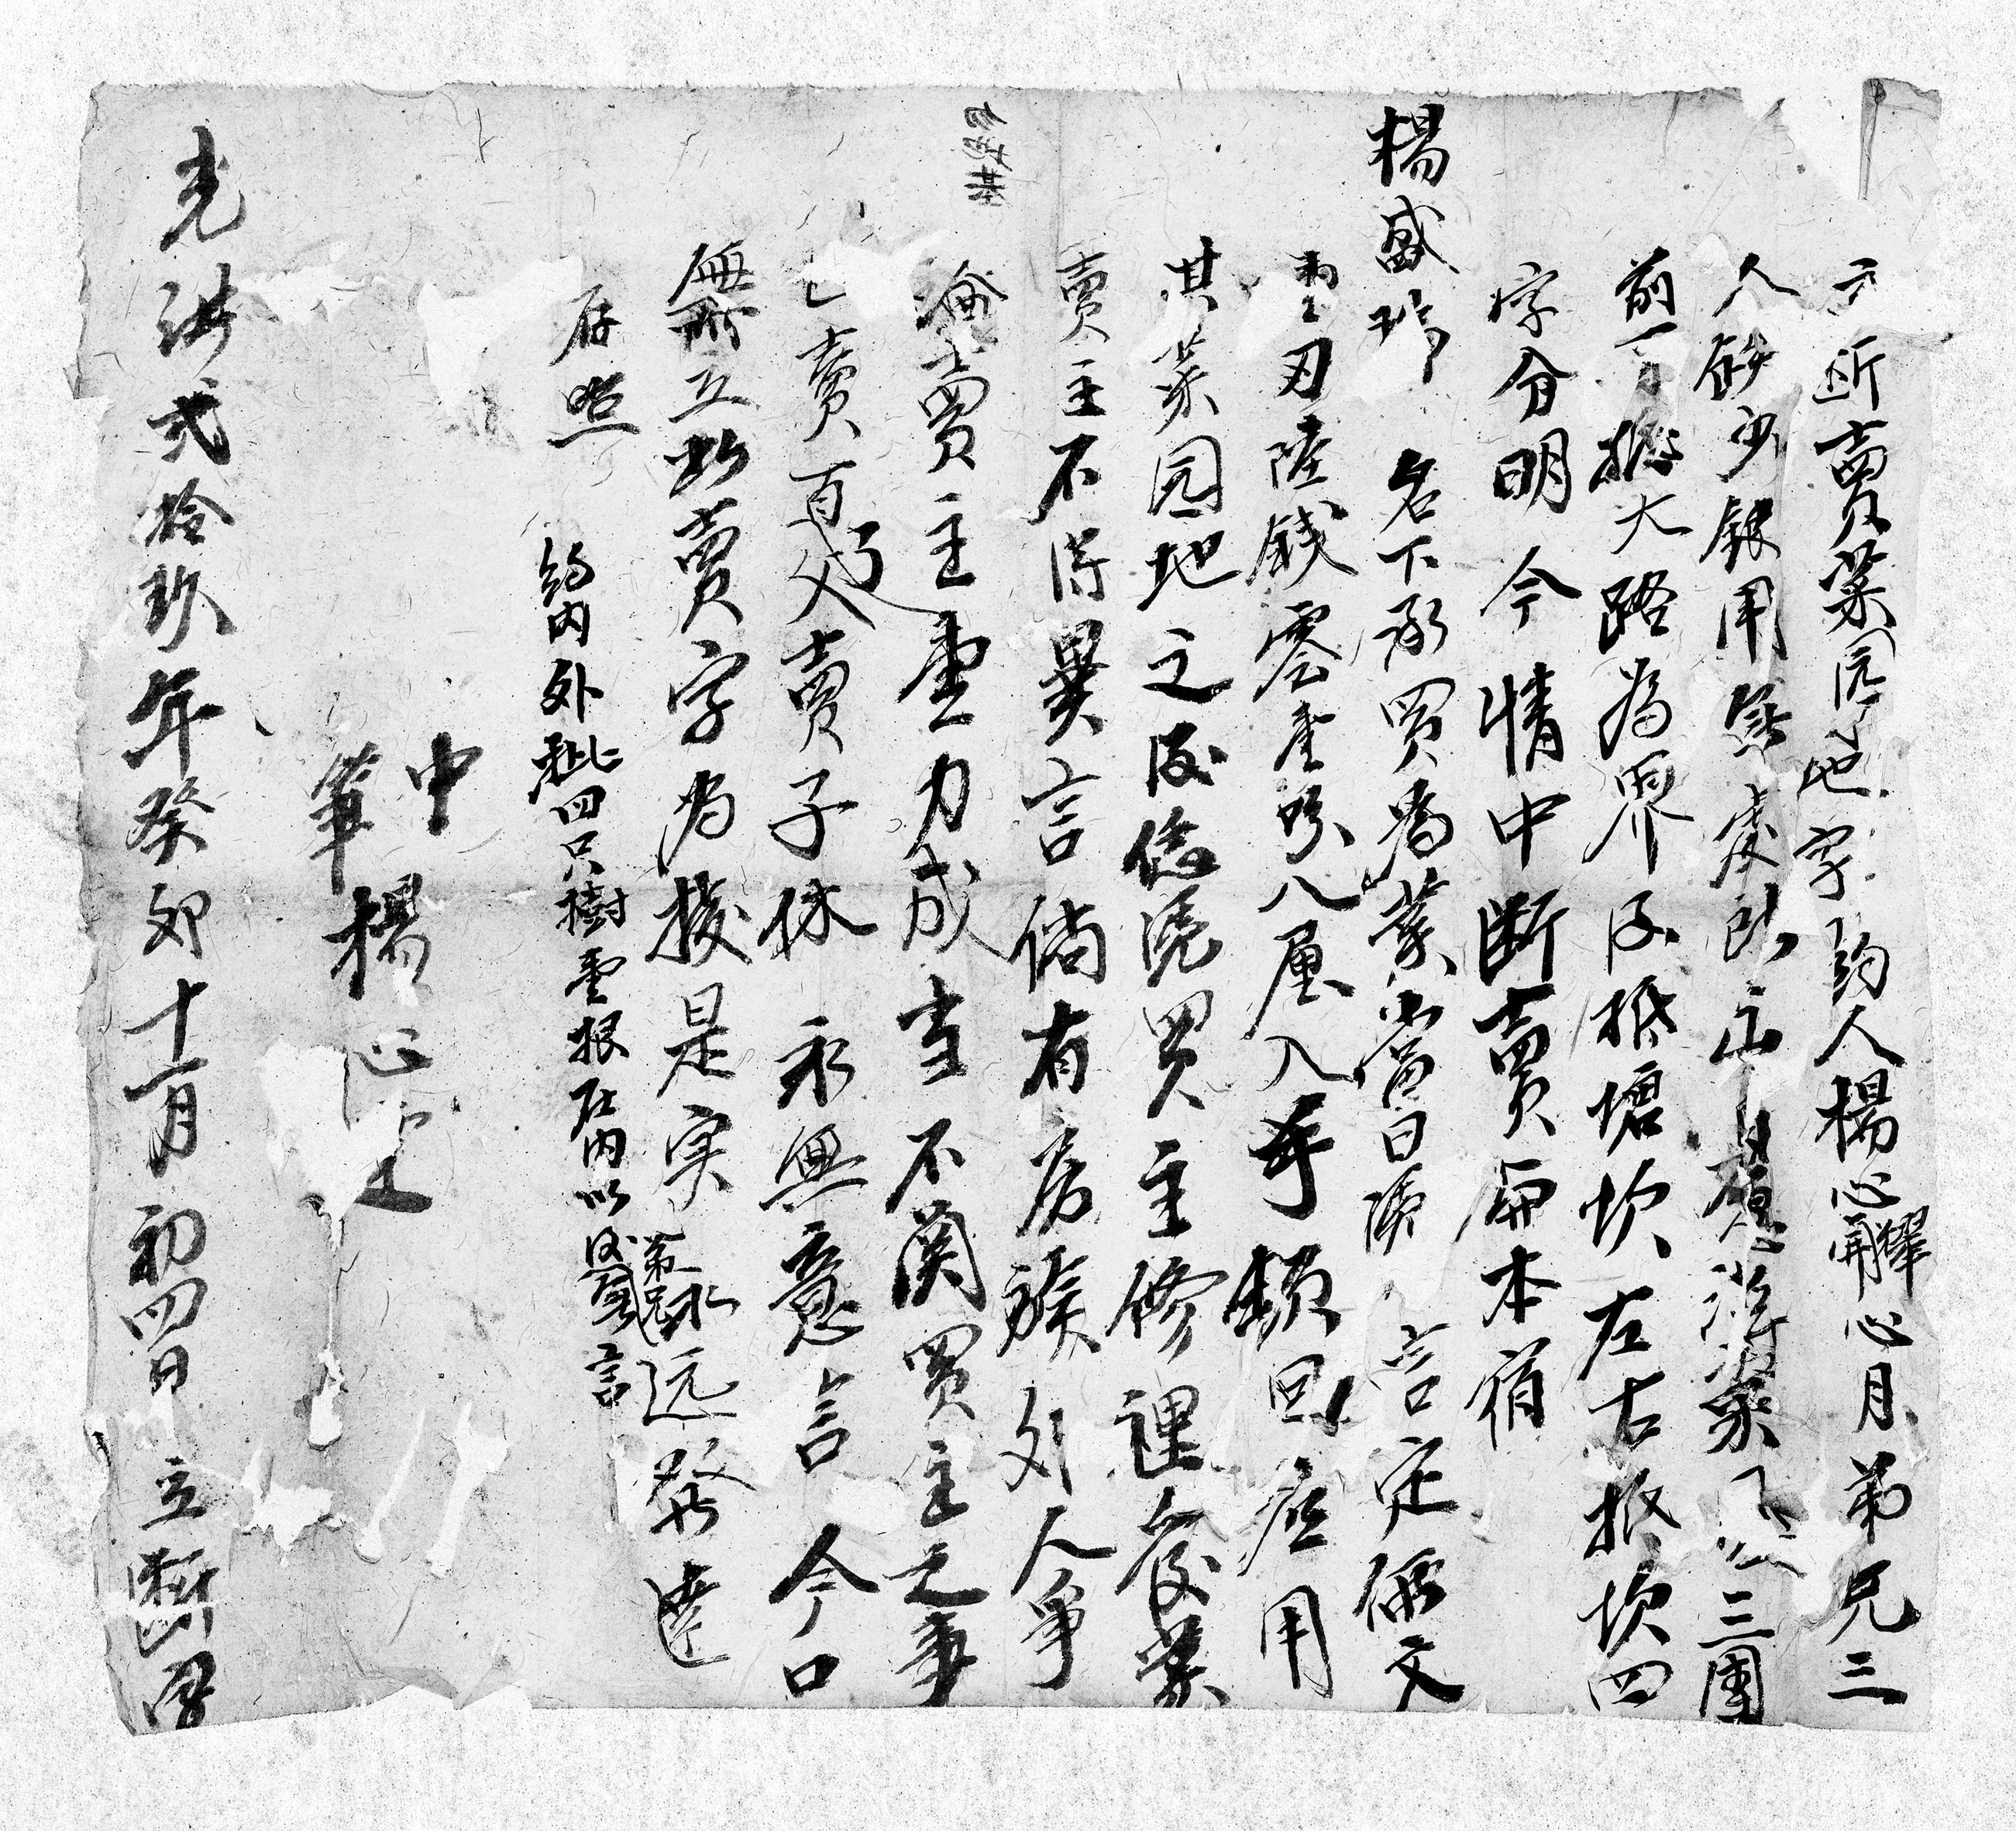 立斷賣菜园地字約人楊心耀心開心月弟兄三
人缺少銀用無處出 菜 三團
前丁抵大路為界后抵塘坎左右抵坎四
字分明今情中断賣与本宿
楊盛 名下承買為業當日 言定價文
壹刃陸錢零壹分八厘入手領回应用
其菜园地之后凭買主修理管業
賣主不得異言倘有房族外人爭
論賣主壹力成当不関買主之事
乚賣百了父賣子休永無意言今口
無凴立此賣字為據是实弟兄永远發達
存照
約内外批四只樹壹根在内以后 言
中
筆 楊心
光緒弍拾玖年癸卯十一月初四日立斷字